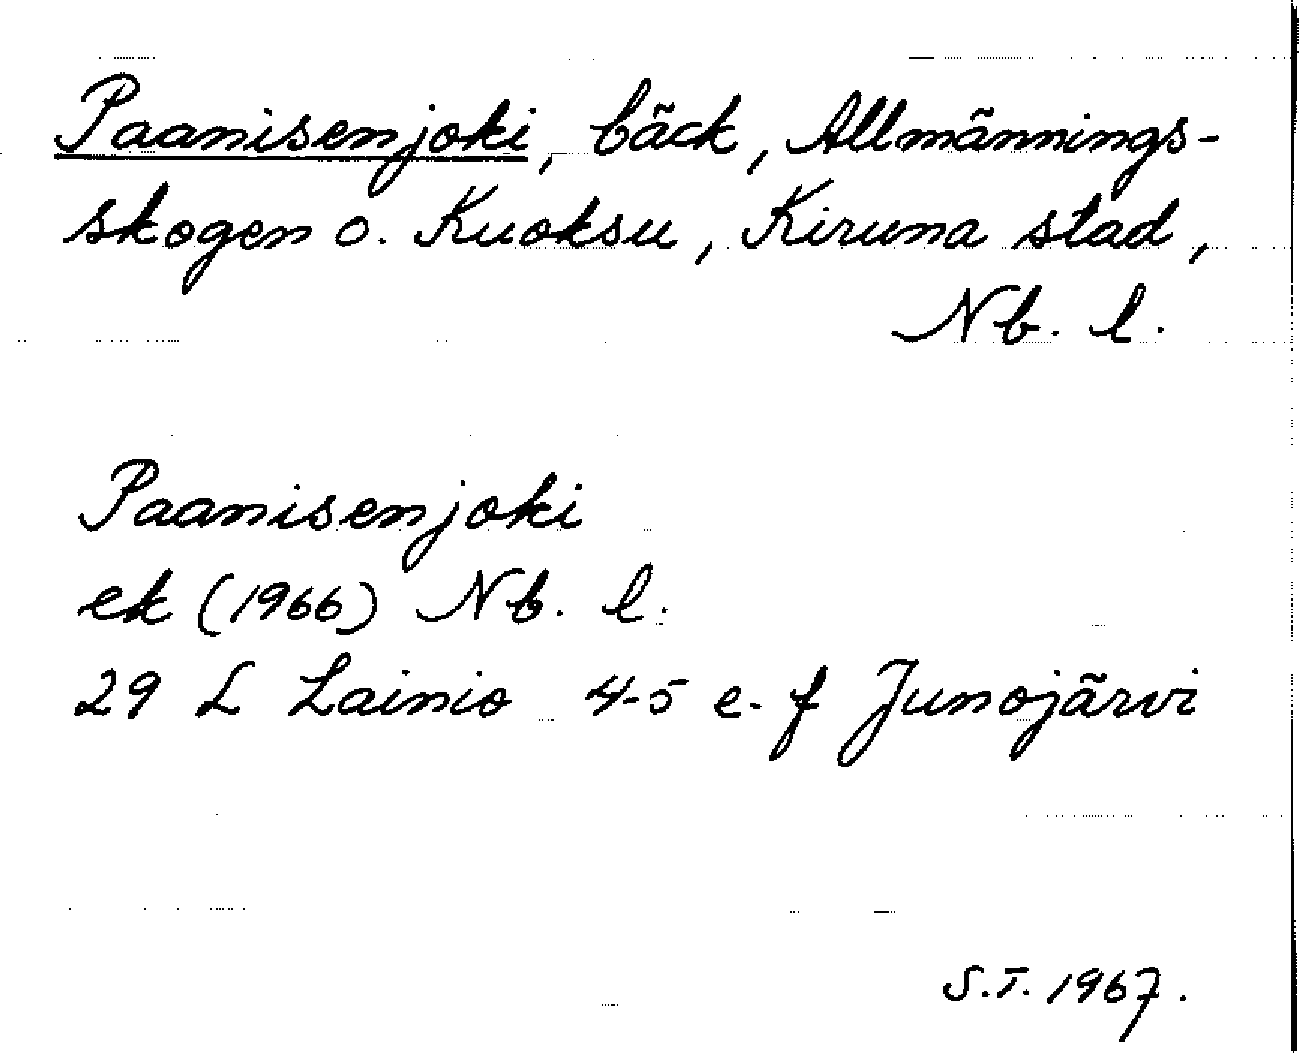 Paanisenjoki, bäck, Allmännings-
skogen o. Kuoksu, Kiruna stad,
Nb. l.
Paanisenjoki
ek (1966) Nb. l.
29 L Lainio 4-5 e-f Junojärvi
S.T. 1967.